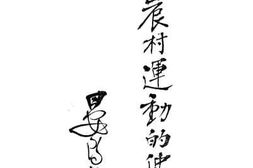 農村運動的
晏